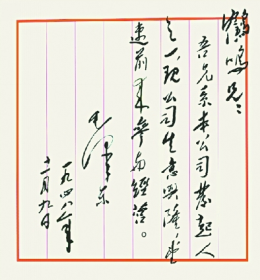 鹤鸣兄：
吾兄系本公司发起人
之一，现公司生意兴隆，望
速前来参与经营。
毛泽东
一九四八年
十一月九日